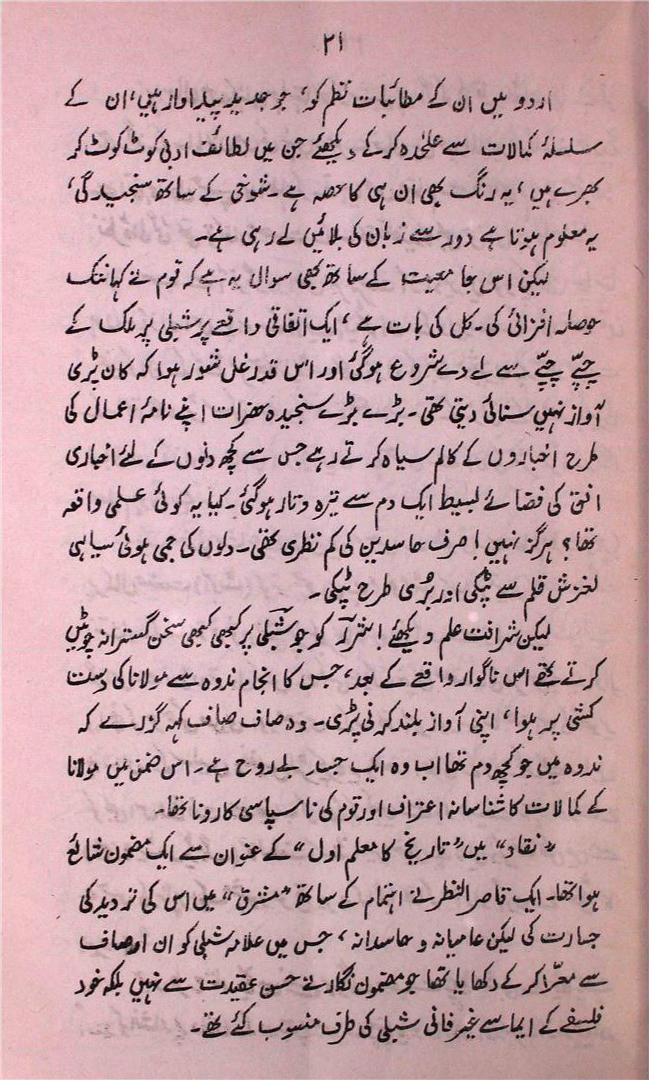 ۲۱
اردو میں ان کے مطائبات نظم کو، جو جدید پیداوار ہیں، ان کے
سلسلۂ کمالات سے علیٰحدہ کرکے دیکھئے جن میں لطائف ادبی کوٹ کوٹ کر
بھرے ہیں، یہ رنگ بھی ان ہی کا حصہ ہے۔ شوخی کے ساتھ سنجیدگی،
یہ معلوم ہوتا ہے دور سے زبان کی بلائیں لے رہی ہے۔
لیکن اس جامعیت کے ساتھ بھی سوال یہ ہے کہ قوم نے کہانتک
حوصلہ افزائی کی۔ کل کی بات ہے، ایک اتفاقی واقعے پر شبلی پر ملک کے
چپّے چپّے سے لے دے شروع ہوگئی اور اس قدر غل شور ہوا کہ کان پڑی
آواز نہیں سنائی دیتی تھی۔ بڑے بڑے سنجیدہ حضرات اپنے نامۂ اعمال کی
طرح اخباروں کے کالم سیاہ کرتے رہے جس سے کچھ دنوں کے لئے اخباری
افق کی فضائے بسیط ایک دم سے تیرہ و تار ہوگئی۔ کیا یہ کوئی علمی واقعہ
تھا؟ ہرگز نہیں! صرف حاسدین کی کم نظری تھی۔ دلوں کی جمی ہوئی سیاہی
لغزش قلم سے ٹپکی اور بُری طرح ٹپکی۔
لیکن شرافت علم دیکھئے! شررؔ کو جو شبلی پر کبھی کبھی سخن گسترانہ چوٹیں
کرتے تھے اس ناگوار واقعے کے بعد، جس کا انجام ندوہ سے مولانا کی دست
کشی پر ہوا، اپنی آواز بلند کرنی پڑی۔ وہ صاف صاف کہہ گزرے کہ
ندوہ میں جو کچھ دم تھا اب وہ ایک جسد بے روح ہے۔ اس ضمن میں مولانا
کے کمالات کا شناسانہ اعتراف اور قوم کی ناسپاسی کا رونا تھا۔
”نقاد“ میں ”تاریخ کا معلم اول“ کے عنوان سے ایک مضمون شائع
ہوا تھا۔ ایک قاصر النظر نے اہتمام کے ساتھ ”مشرق“ میں اس کی تردید کی
جسارت کی لیکن عامیانہ و حاسدانہ، جس میں علامہ شبلی کو ان اوصاف
سے معرّا کرکے دکھایا تھا جو مضمون نگار نے حسن عقیدت سے نہیں بلکہ خود
فلسفے کے ایما سے غیر فانی شبلی کی طرف منسوب کئے تھے۔